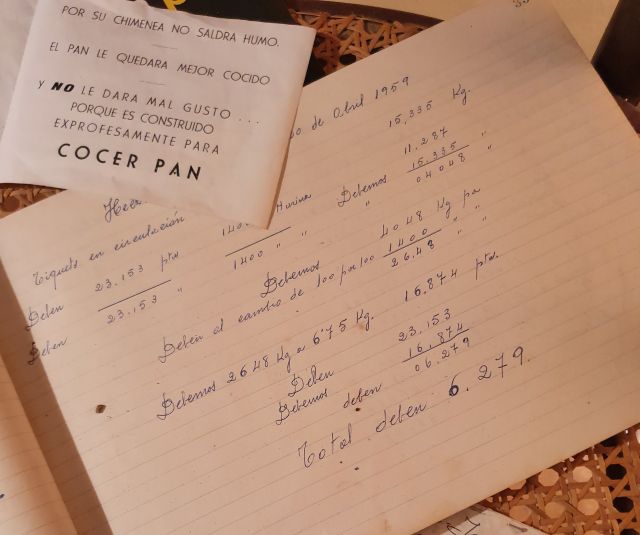 POR SU CHIMENEA NO SALDRA HUMO.
EL PAN LE QUEDARA MEJOR COCIDO
Y NO LE DARA MAL GUSTO ...
PORQUE ES CONSTRUIDO
EXPROFESAMENTE PARA
COCER PAN
de Abril 1959
15.335 Kg.
Tiquets en circulación
11.287 "
Harina Debemos 15.335 "
1400 " " " 04048 "
Deben 23.153 pts
Deben 23.153 "
Debemos 4048 Kg pa
1400 " "
Deben al cambio de 100 por 100 26.48 " "
Debemos 2648 Kg a 6'75 Kg. 16.874 pts.
Deben 23.153
Debemos 16.874
deben 06.279
Total deben 6.279.